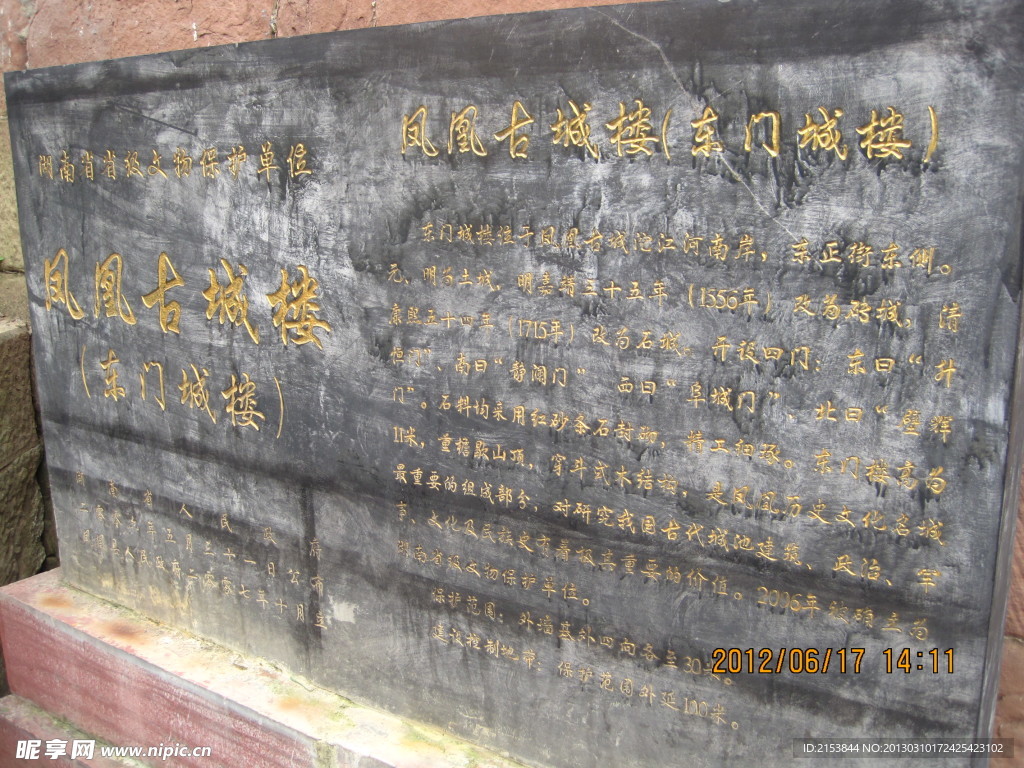 湖南省省级文物保护单位
凤凰古城楼
(东门城楼)
湖南省人民政府
二零零六年五月三十一日公布
凤凰县人民政府二零零七年十月立
凤凰古城楼(东门城楼)
东门城楼位于凤凰古城沱江河南岸，东正街东侧。
元、明为土城，明嘉靖三十五年(1556年)改为砖城，清
康熙五十四年(1715年)改为石城。开设四门：东曰“升
恒门”、南曰“静澜门”、西曰“阜城门”、北曰“壁辉
门”。石料均采用红砂条石封砌，精工细琢。东门楼高为
11米，重檐歇山顶，穿斗式木结构，是凤凰历史文化名城
最重要的组成部分，对研究我国古代城池建筑、政治、军
事、文化及民族史有着极其重要的价值。2006年被确立为
湖南省级文物保护单位。
保护范围：外墙基外四向各至30米。
建设控制地带：保护范围外延100米。
2012/06/17 14:11
昵享网 www.nipic.cn
ID:2153844 NO:20130310172425423102